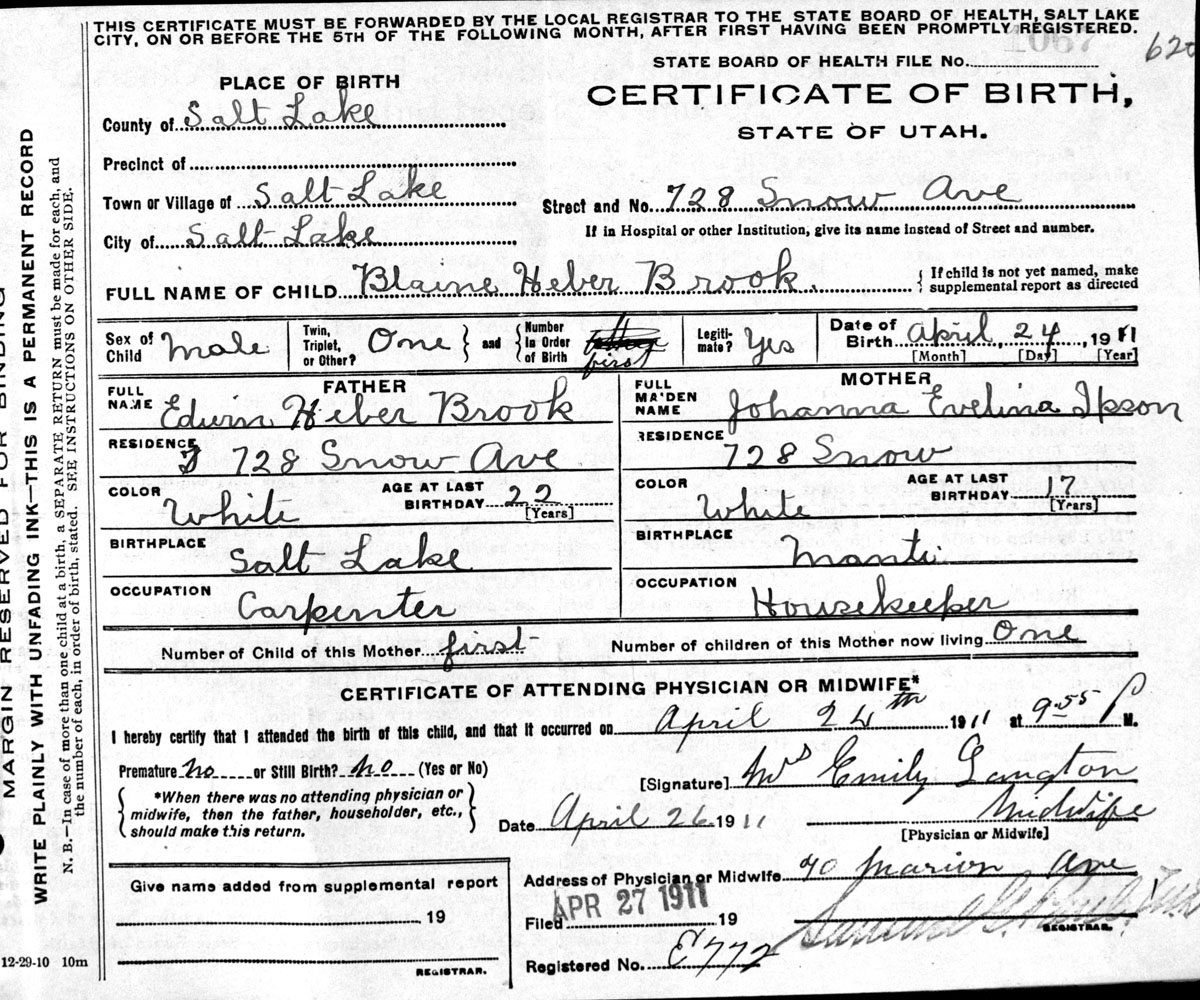 THIS CERTIFICATE MUST BE FORWARDED BY THE LOCAL REGISTRAR TO THE STATE BOARD OF HEALTH, SALT LAKE
CITY, ON OR BEFORE THE 5TH OF THE FOLLOWING MONTH, AFTER FIRST HAVING BEEN PROMPTLY REGISTERED.
1067
STATE BOARD OF HEALTH FILE No.
PLACE OF BIRTH
CERTIFICATE OF BIRTH,
STATE OF UTAH.
County of Salt Lake
Precinct of
Town or Village of Salt Lake
Street and No. 728 Snow Ave
City of Salt Lake
If in Hospital or other Institution, give its name instead of Street and number.
FULL NAME OF CHILD Blaine Heber Brook.
If child is not yet named, make
supplemental report as directed
Sex of Child Male
Twin, Triplet, or Other? One
and Number In Order of Birth first
Legitimate? Yes
Date of Birth April, 24, 1911
[Month] [Day] [Year]
FATHER
FULL NAME Edwin Heber Brook
MOTHER
FULL MAIDEN NAME Johanna Evelina Ipson
RESIDENCE 728 Snow Ave.
RESIDENCE 728 Snow
COLOR White
AGE AT LAST BIRTHDAY 22 [Years]
COLOR White
AGE AT LAST BIRTHDAY 17 [Years]
BIRTHPLACE Salt Lake
BIRTHPLACE Manti
OCCUPATION Carpenter
OCCUPATION Housekeeper
Number of Child of this Mother first
Number of children of this Mother now living One
CERTIFICATE OF ATTENDING PHYSICIAN OR MIDWIFE*
I hereby certify that I attended the birth of this child, and that it occurred on April 24th 1911 at 9-55 P M.
Premature? No or Still Birth? No (Yes or No)
[Signature] Mrs Emily Langton
*When there was no attending physician or
midwife, then the father, householder, etc.,
should make this return.
Date April 26 1911
Midwife
[Physician or Midwife]
Give name added from supplemental report
19
REGISTRAR.
Address of Physician or Midwife 70 Marion Ave
Filed APR 27 1911 19
REGISTRAR.
Registered No. E772
12-29-10 10m
MARGIN RESERVED FOR BINDING
WRITE PLAINLY WITH UNFADING INK—THIS IS A PERMANENT RECORD
N. B.—In case of more than one child at a birth, a SEPARATE RETURN must be made for each, and
the number of each, in order of birth, stated. SEE INSTRUCTIONS ON OTHER SIDE.